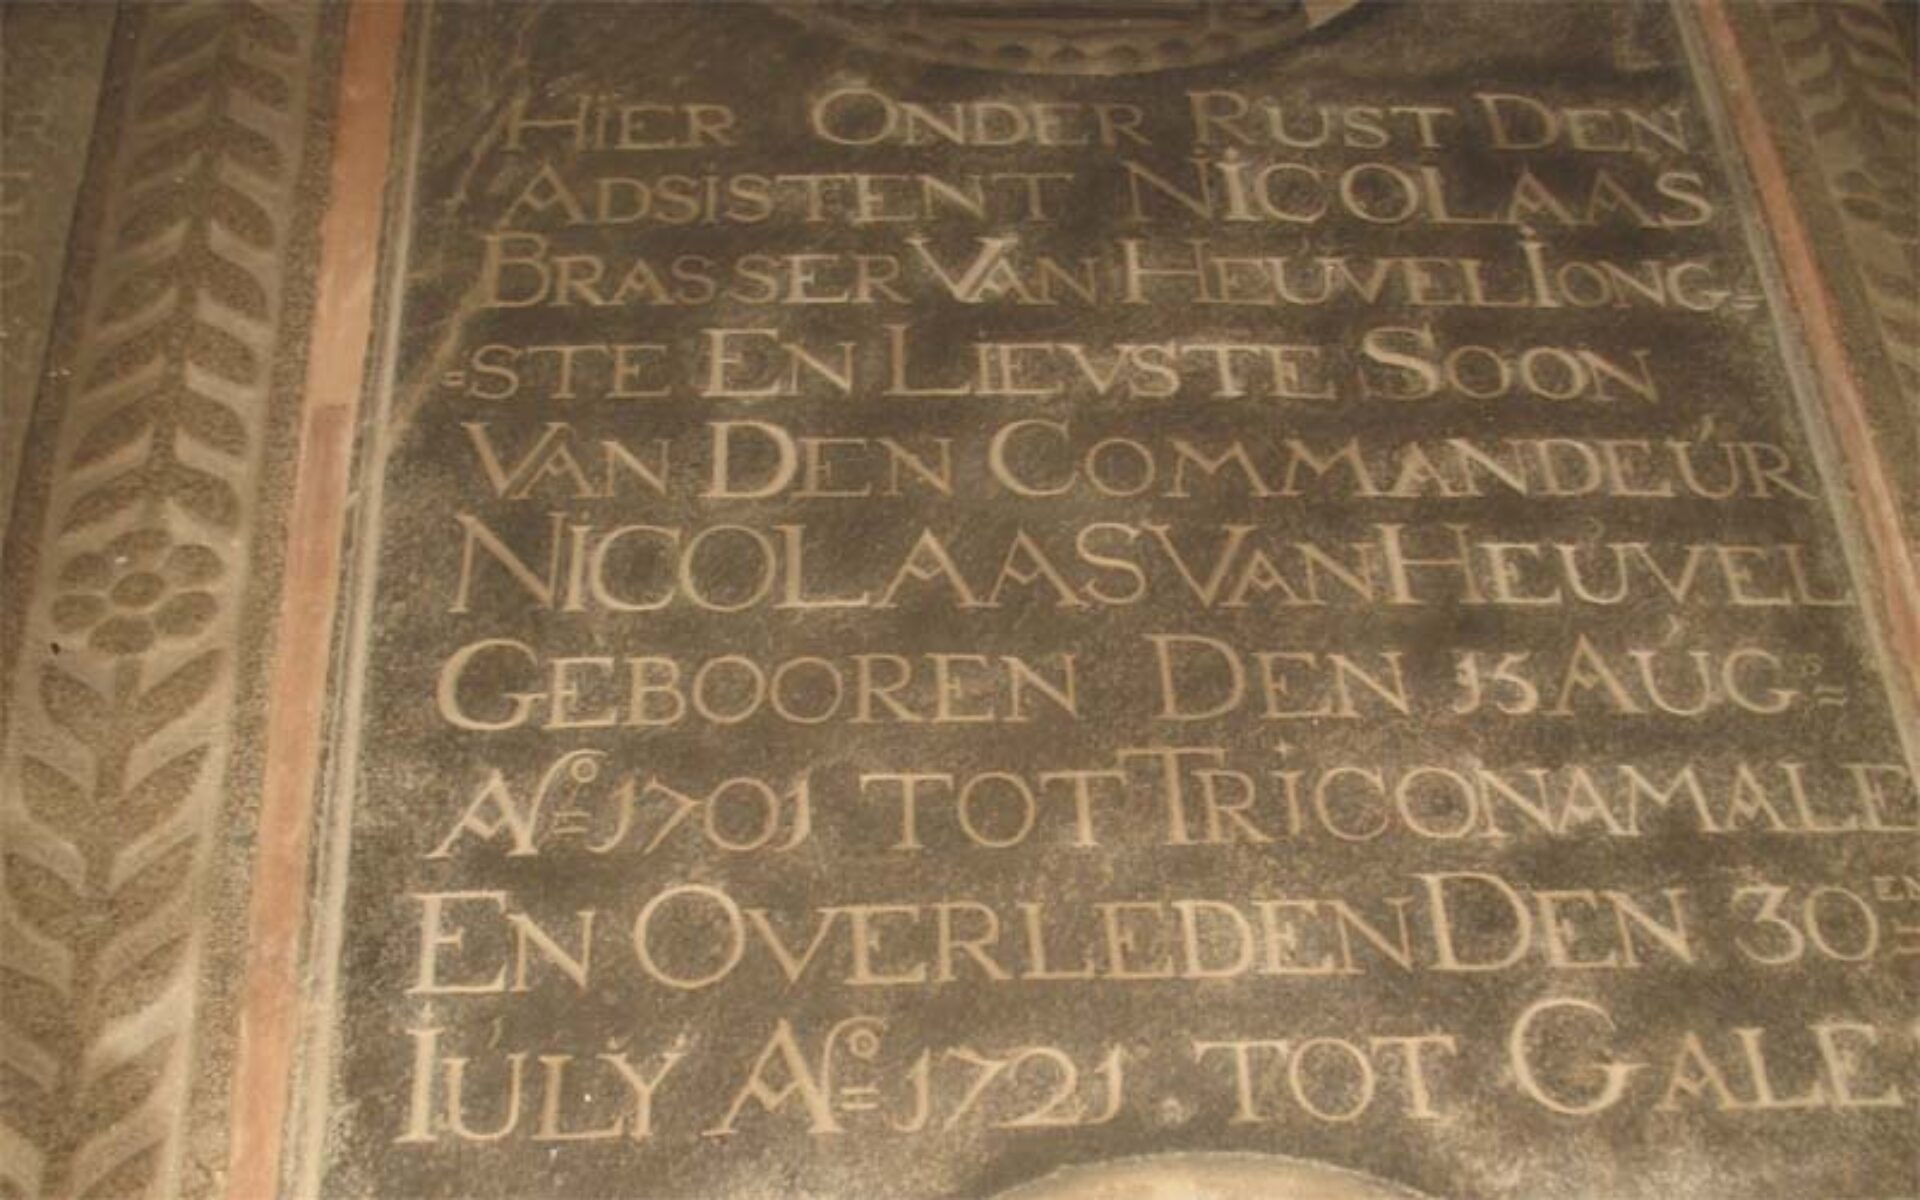 HIER ONDER RUST DEN
ADSISTENT NICOLAAS
BRASSER VAN HEÚVEL IONG=
=STE EN LIEVSTE SOON
VAN DEN COMMANDEÚR
NICOLAAS VAN HEÚVEL
GEBOOREN DEN 15 AÚGS=
ANº= 1701 TOT TRICONAMALE
EN OVERLEDEN DEN 30EN=
IÚLY ANº= 1721. TOT GALE